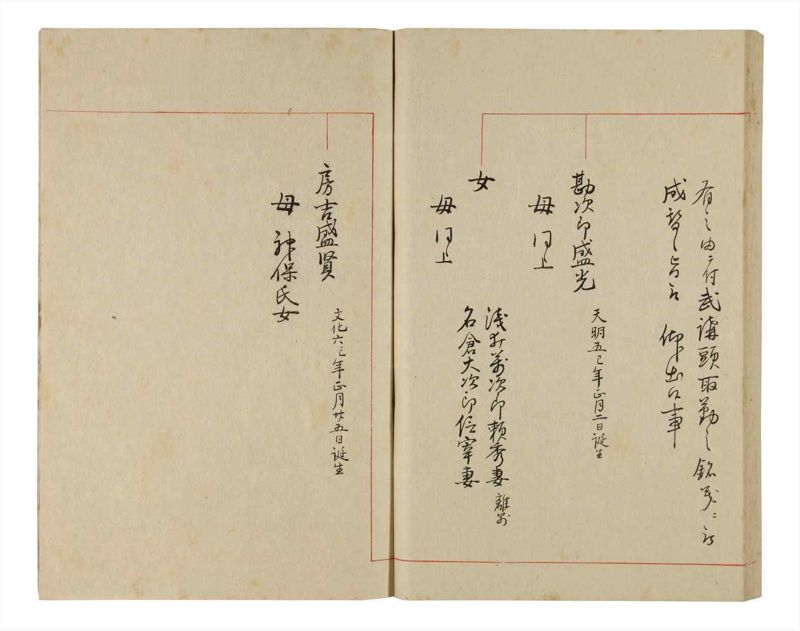 有之由ニ付武講頭取勤之銘茂ニ
成 旨 御出口事
勘次郎盛光 天明五巳年正月二日誕生
母 同上
女 浅井萬次郎頼秀妻 離別
名倉大次郎信宰妻
母 同上
房吉盛賢 文化六巳年正月廿五日誕生
母 神保氏女